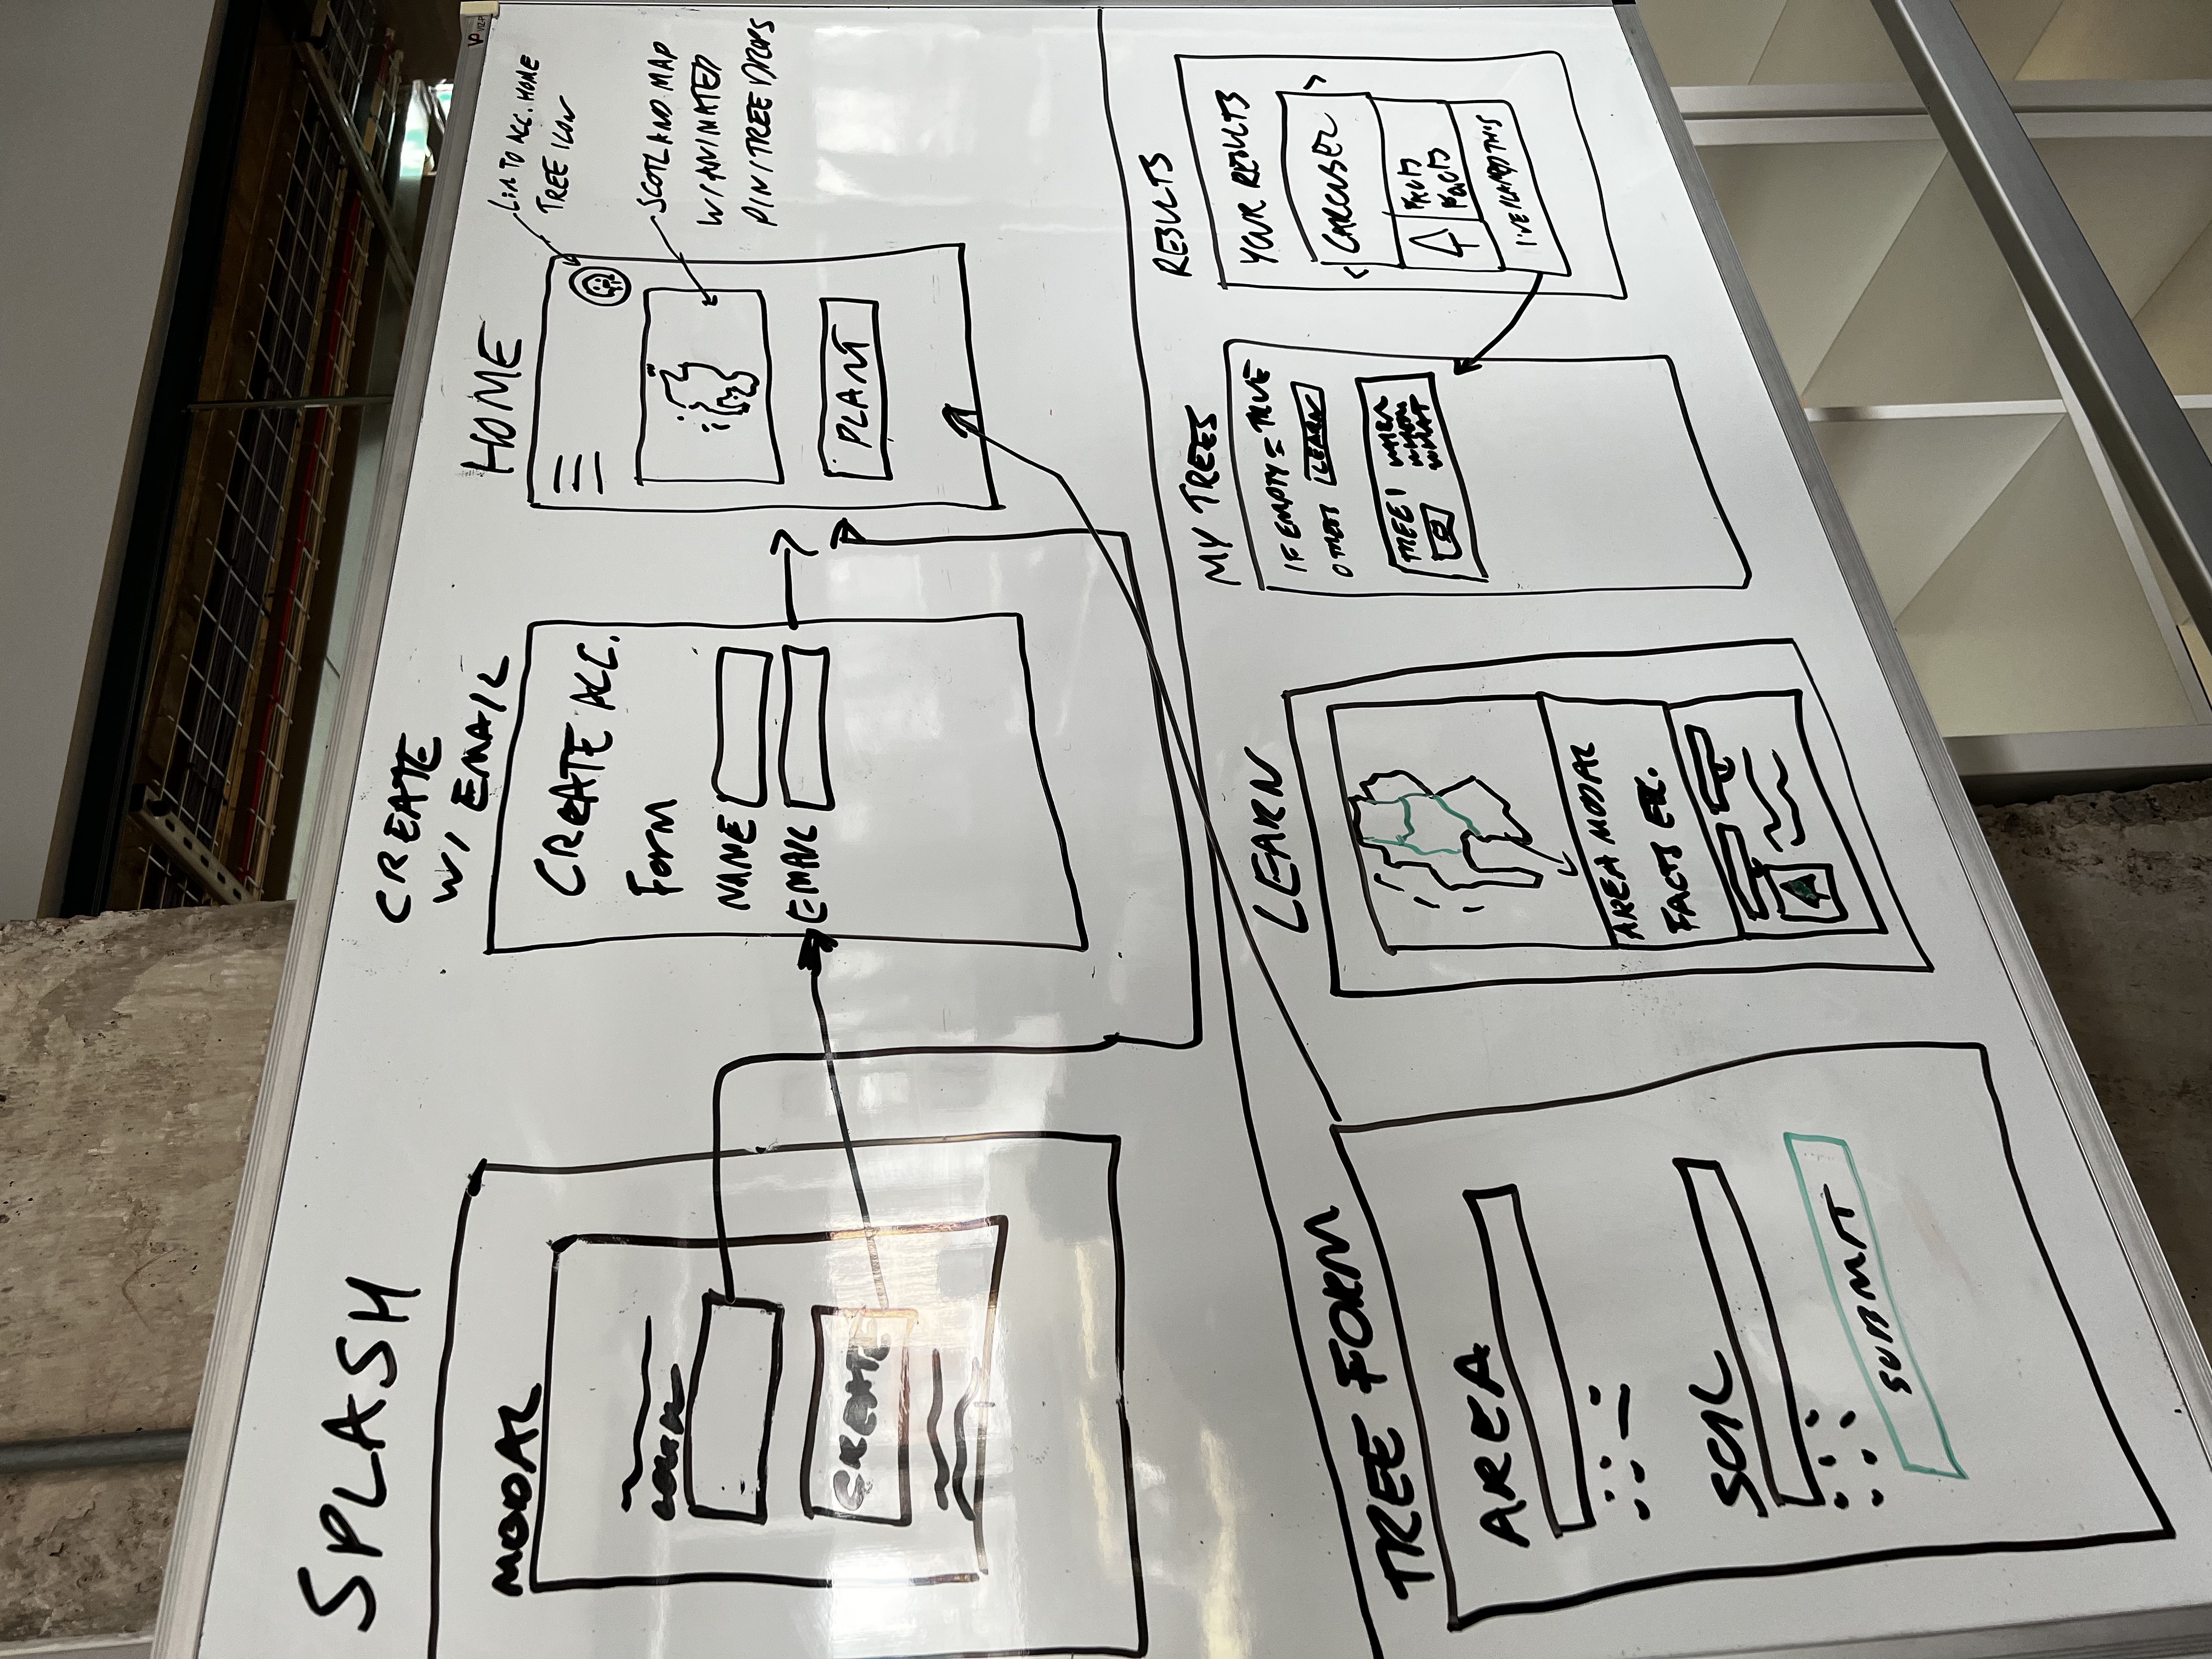 SPLASH
MODAL
LOGIN
CREATE
CREATE
W/ EMAIL
CREATE ACC.
Form
NAME
EMAIL
HOME
PLANT
Lin TO ACC. HOME
TREE ICON
SCOTLAND MAP
W/ ANIMATED
PIN/TREE DROPS
TREE FORM
AREA
SOIL
SUBMIT
LEARN
AREA MODAL
FACTS ETC.
MY TREES
IF EMPTY = TRUE
0 TREES LEARN
TREE 1
WHEN
WHERE
WHAT
RESULTS
YOUR RESULTS
< CAROUSEL >
FACTS
FACTS
I'VE PLANTED THIS
VP